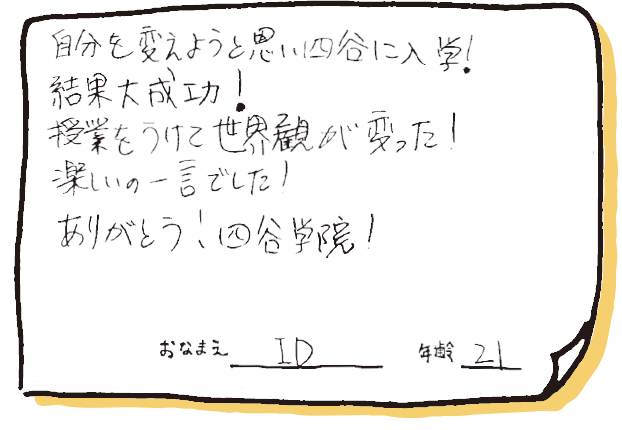 自分を変えようと思い四谷に入学!
結果大成功!
授業をうけて世界観が変った!
楽しいの一言でした!
ありがとう!四谷学院!
おなまえ ID 年齢 21